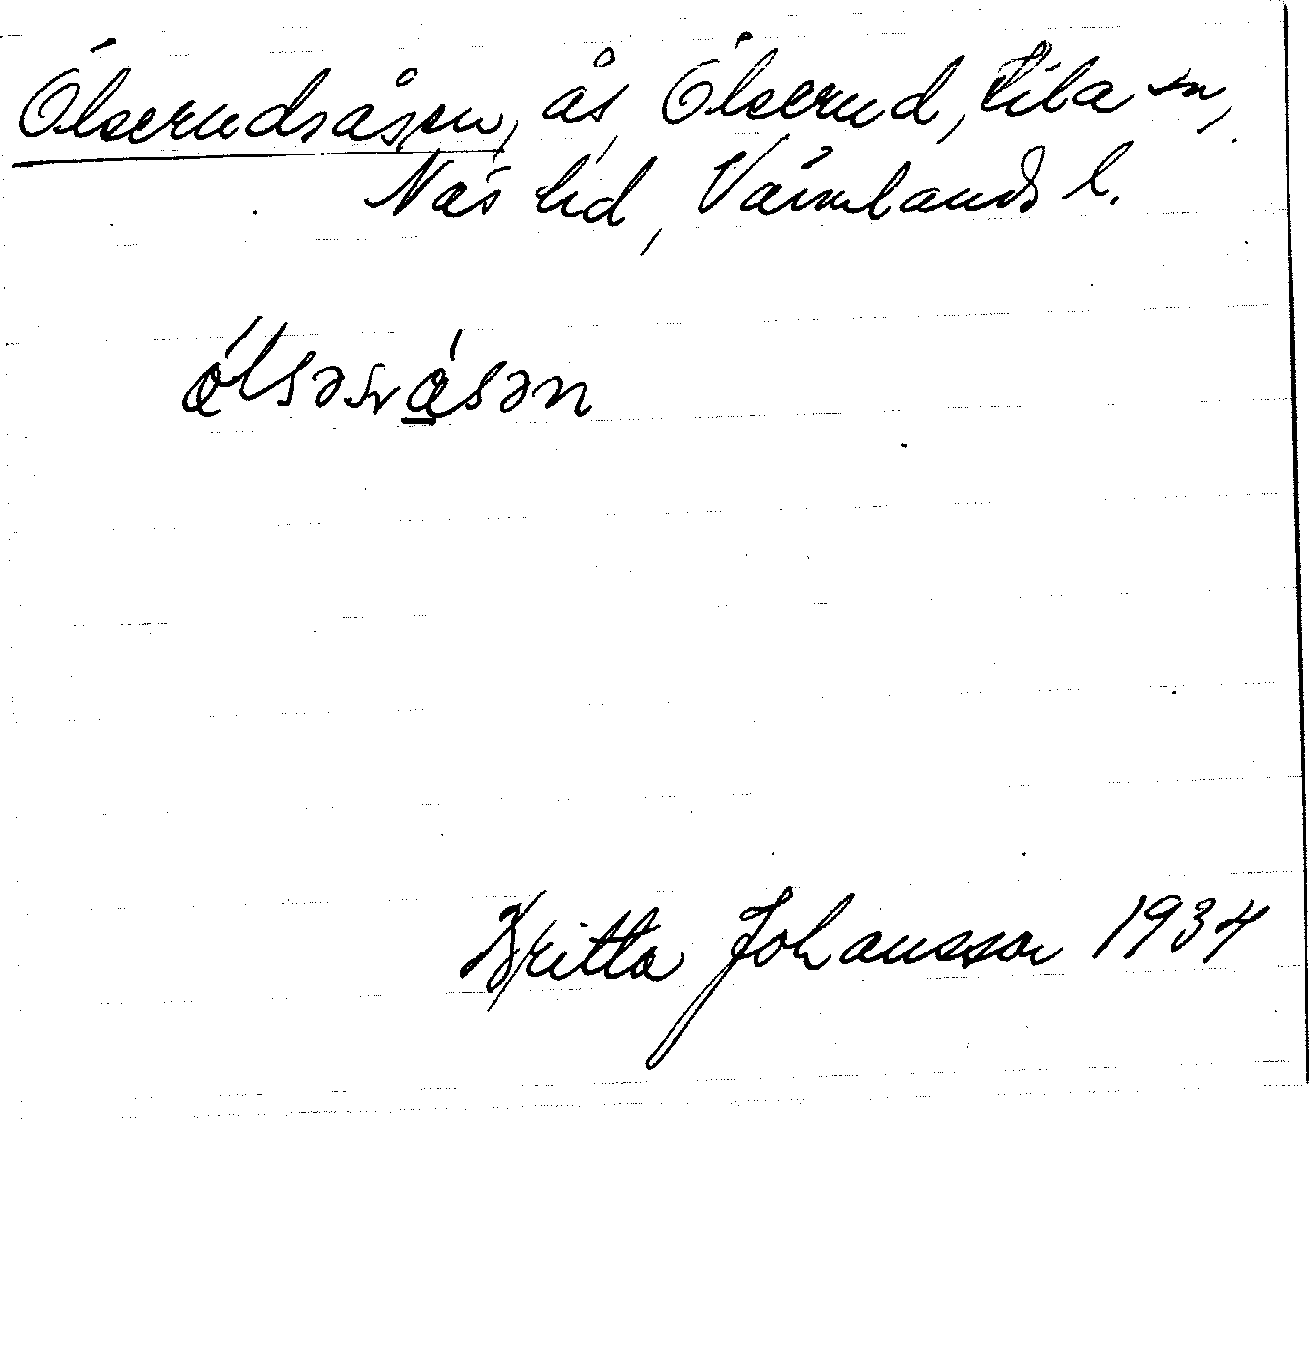 Ölserudsåsen, ås, Ölserud, Kila sn,
Näs hd, Värmlands l.
Britta Johansson 1934